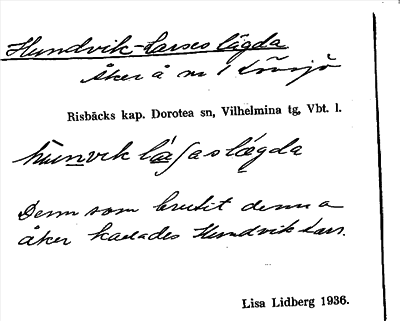 Hundvik-Larses lägda
Åker å nr 1 Lövsjö
Risbäcks kap. Dorotea sn, Vilhelmina tg, Vbt. l.
hunvik laʃas lægda
Denn som brutit denna
åker kallades Hundvik Lars.
Lisa Lidberg 1936.